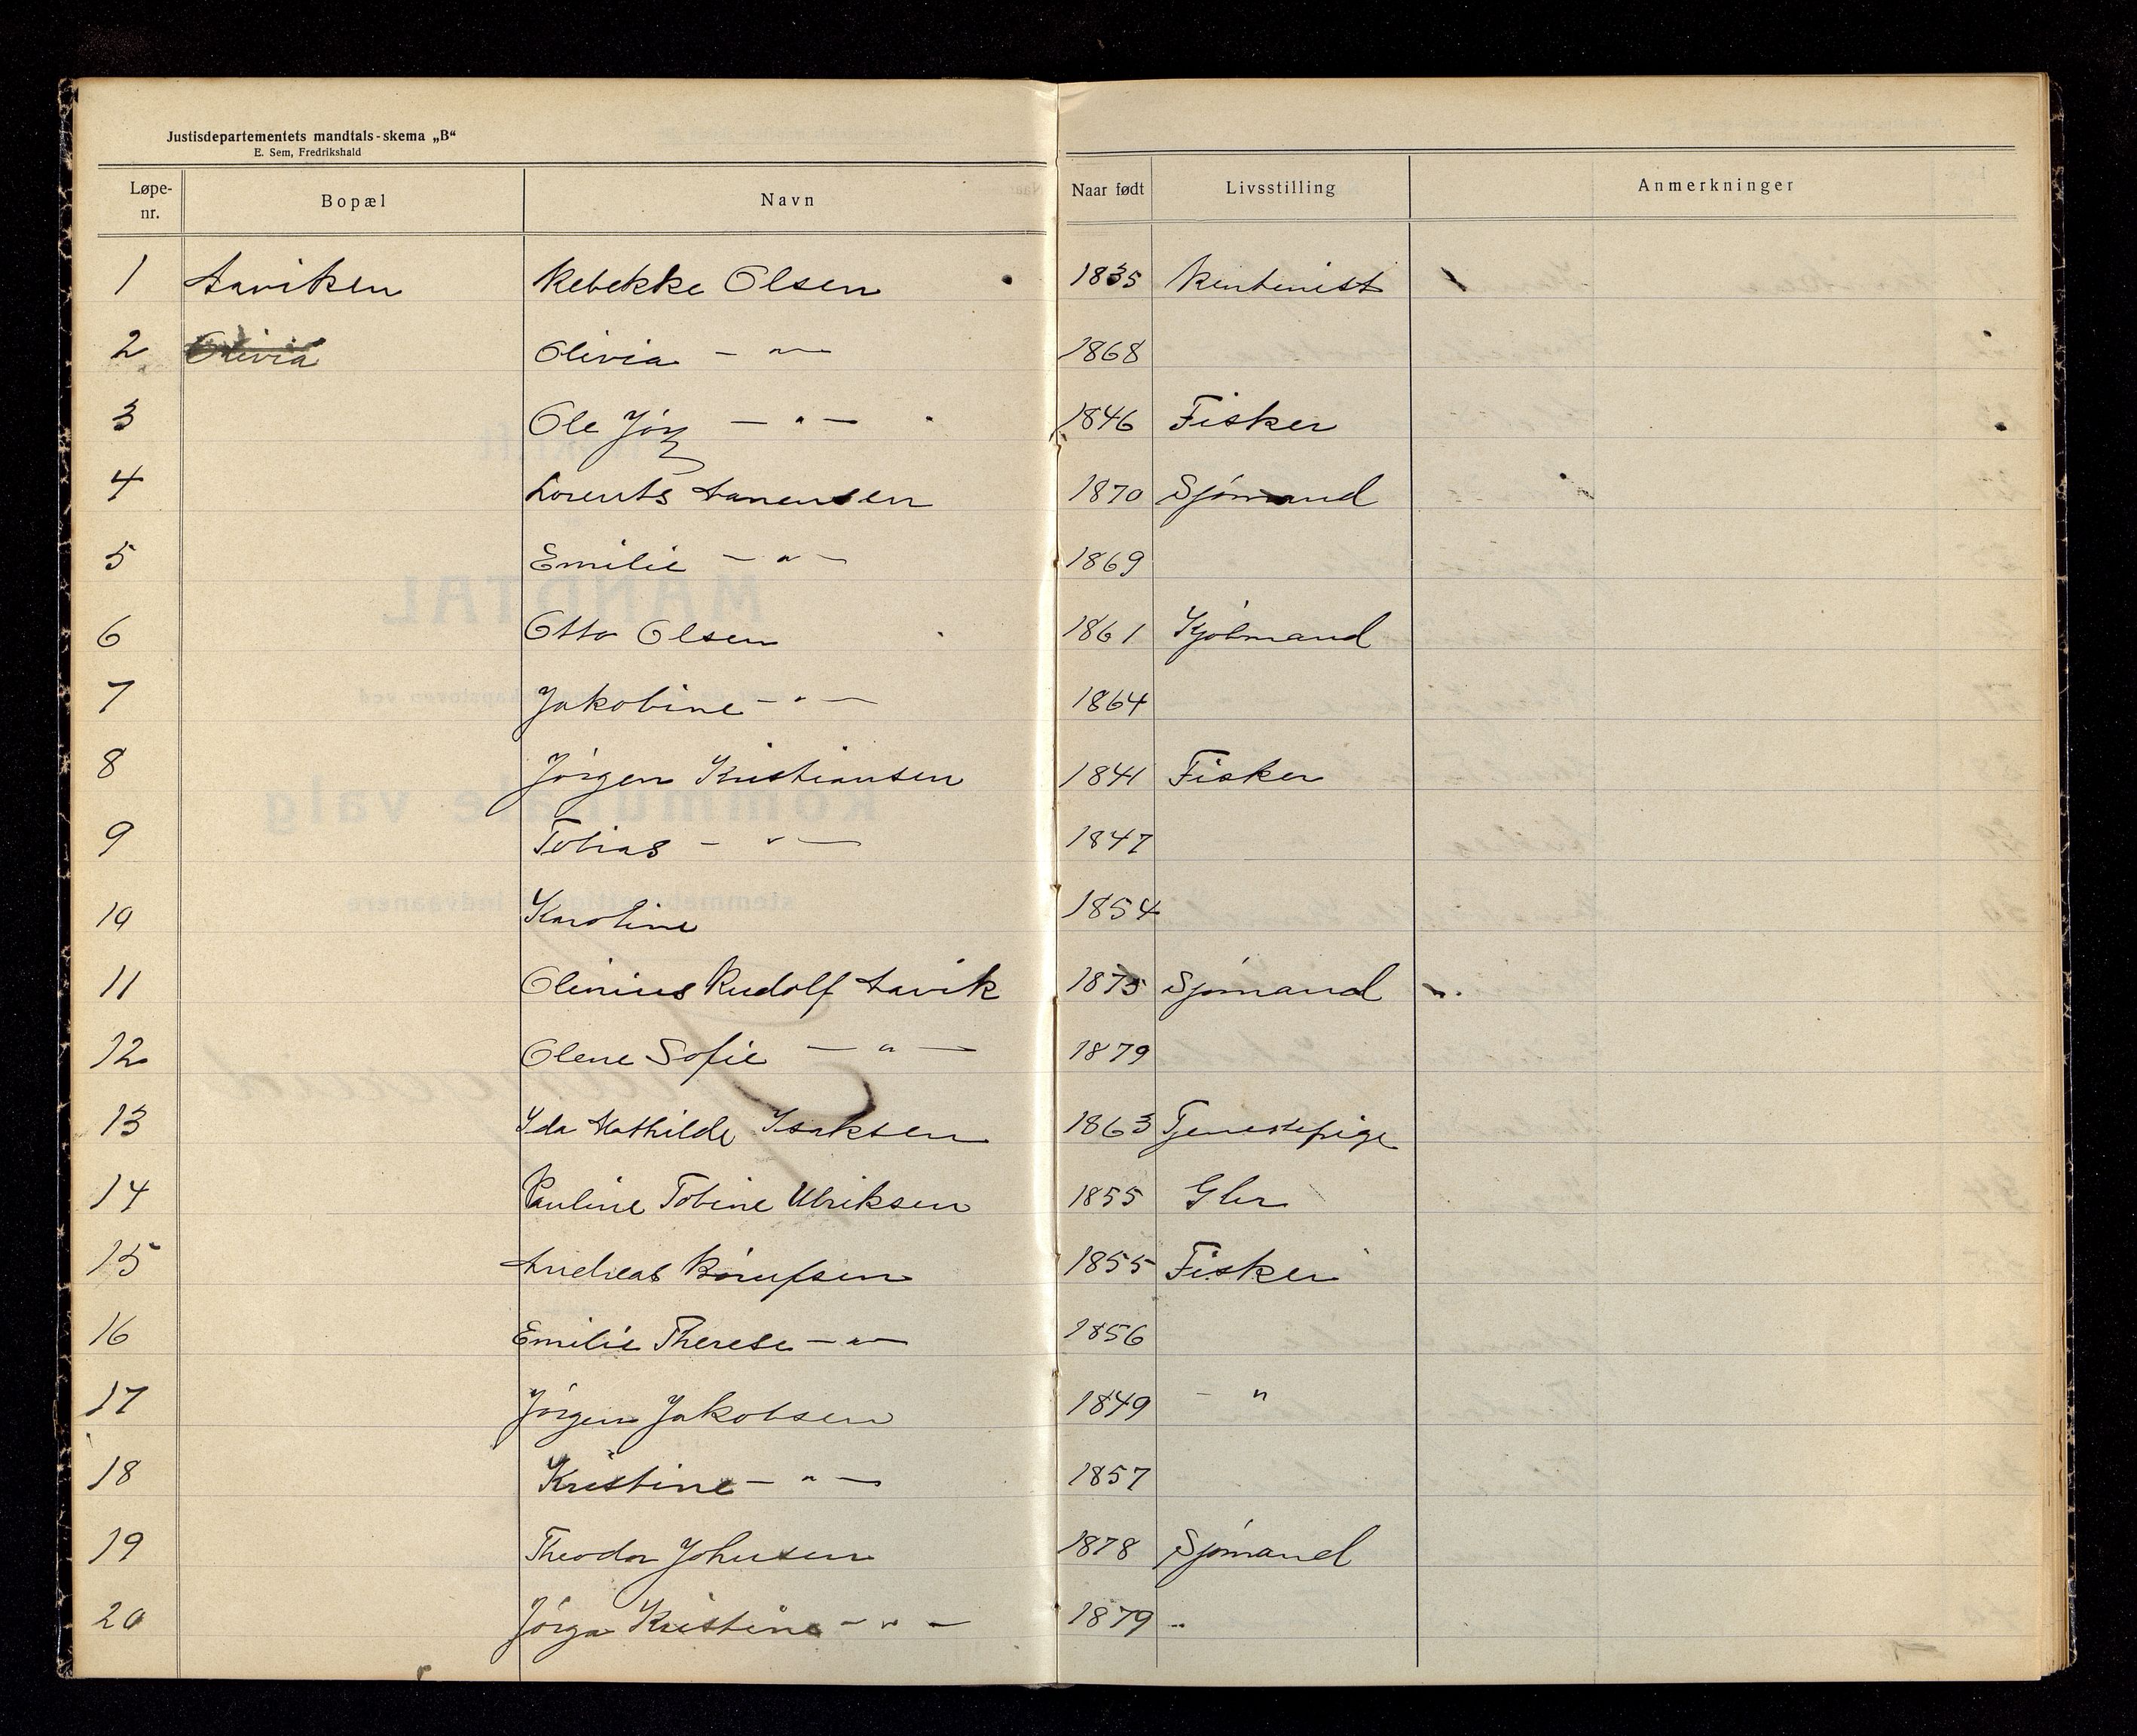 Justisdepartementets mandtals-skema „B“
E. Sem, Fredrikshald
Løpe-nr. Bopæl Navn Naar født Livsstilling Anmerkninger
1 Aaviken Rebekke Olsen 1835 Rentenist
2 Olivia Olivia — " — 1868
3 Ole Jørg — " — 1846 Fisker
4 Lorents Aanensen 1870 Sjømand
5 Emilie — " — 1869
6 Otto Olsen 1861 Kjøbmand
7 Jakobine — " — 1864
8 Jørgen Kristiansen 1841 Fisker
9 Tobias — " — 1847
10 Karoline 1854
11 Olinius Rudolf Aavik 1875 Sjømand
12 Olene Sofie — " — 1879
13 Ida Mathilde Isaksen 1863 Tjenestepige
14 Pauline Tobine Ulriksen 1855 Gbr
15 Andreas 1855 Fisker
16 Emilie Therese — " — 1856
17 Jørgen Jakobsen 1849 — "
18 Kristine — " — 1857
19 Theodor Johnsen 1878 Sjømand
20 Jørga Kristine — " — 1879 "